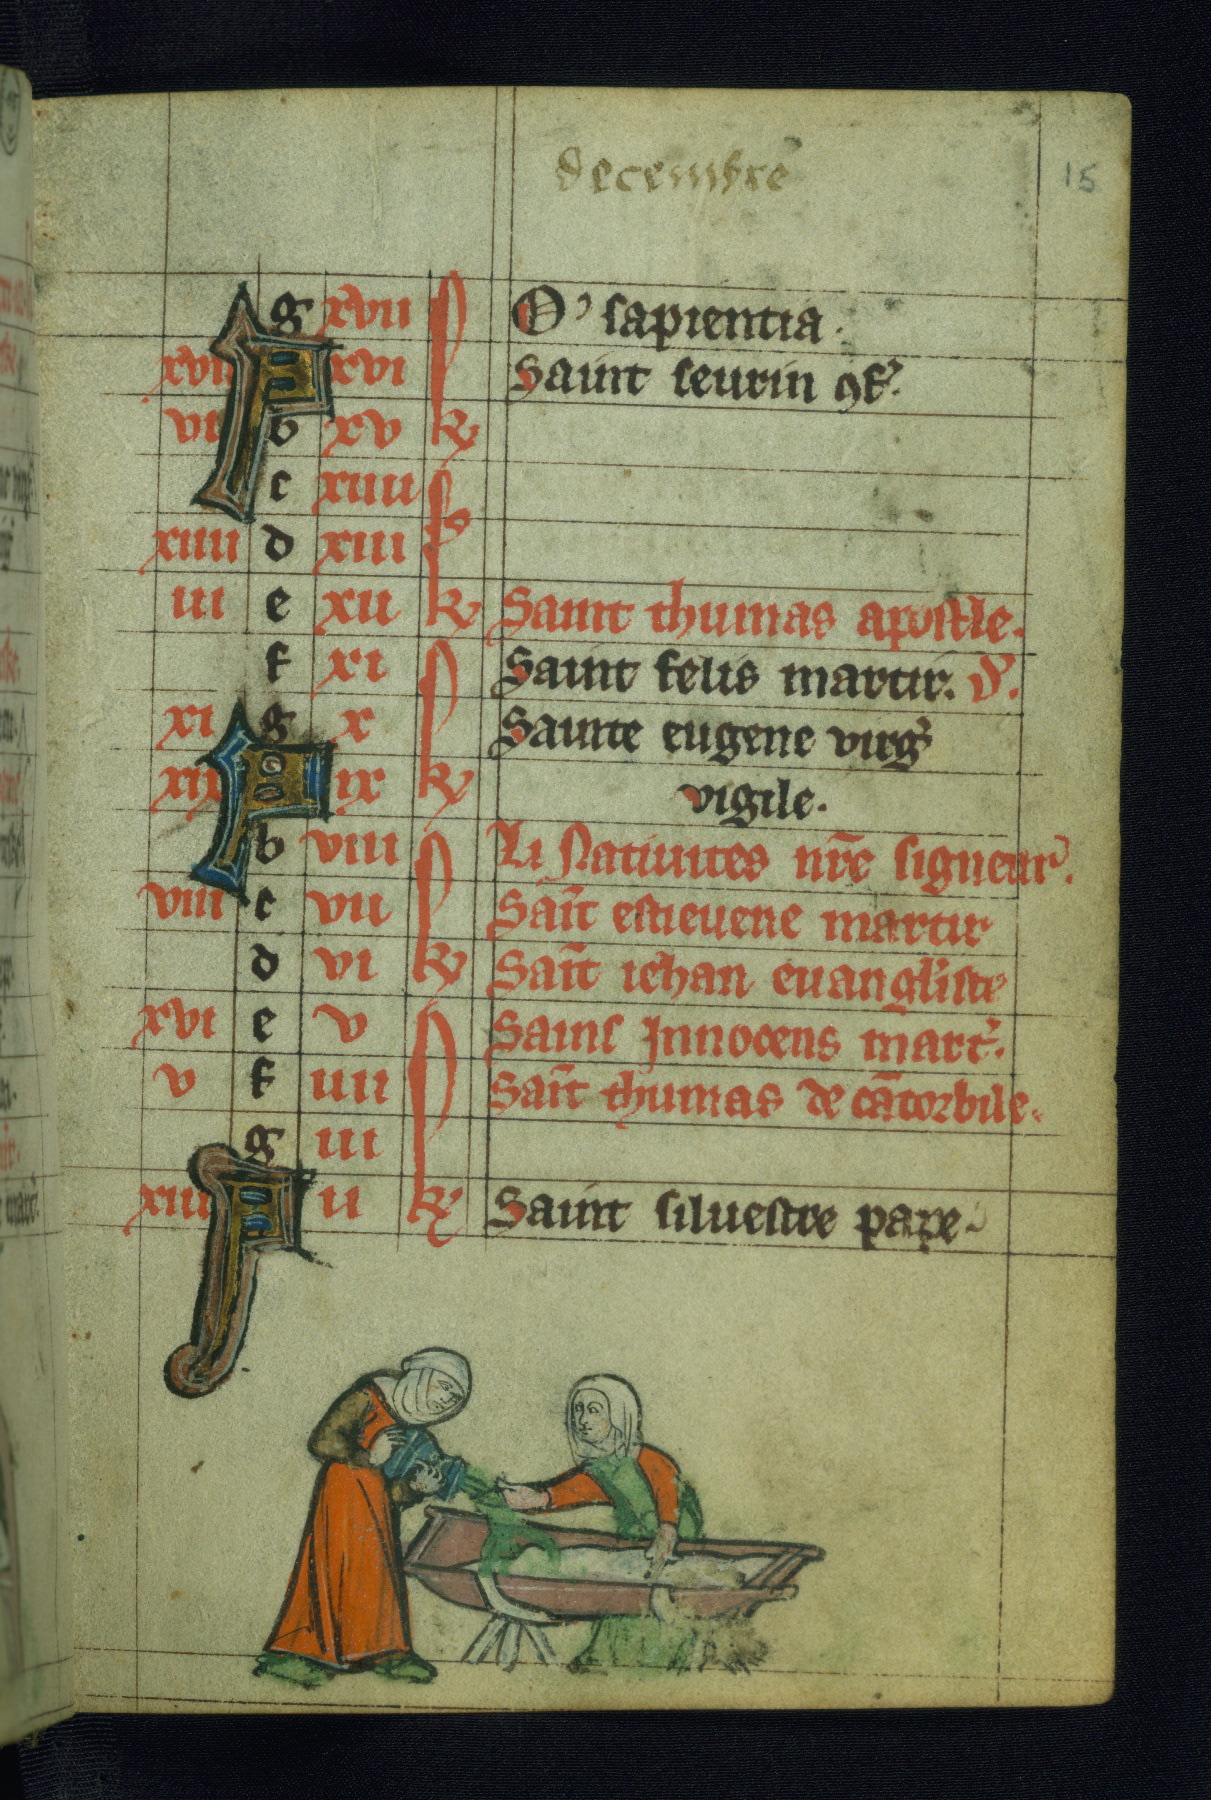 decembre
15
g xvii O' sapientia.
xvii A xvi Saint seurin 9f'.
vi b xv k
c xiiii
xiiii d xiii
iii e xii k Saint thumas apostle.
f xi Saint felis martir. d'.
xi g x Sainte eugene virg'
xix A ix k vigile.
b viii Li Natiuites nr̄e signeur'.
viii c vii Sāīt estieuene martir
d vi k Sāīt iehan euangliste
xvi e v Sains Innocens mart'.
v f iiii Sāīt thumas de cātorbile.
g iii
xiii A ii kl' Saint siluestre pape.